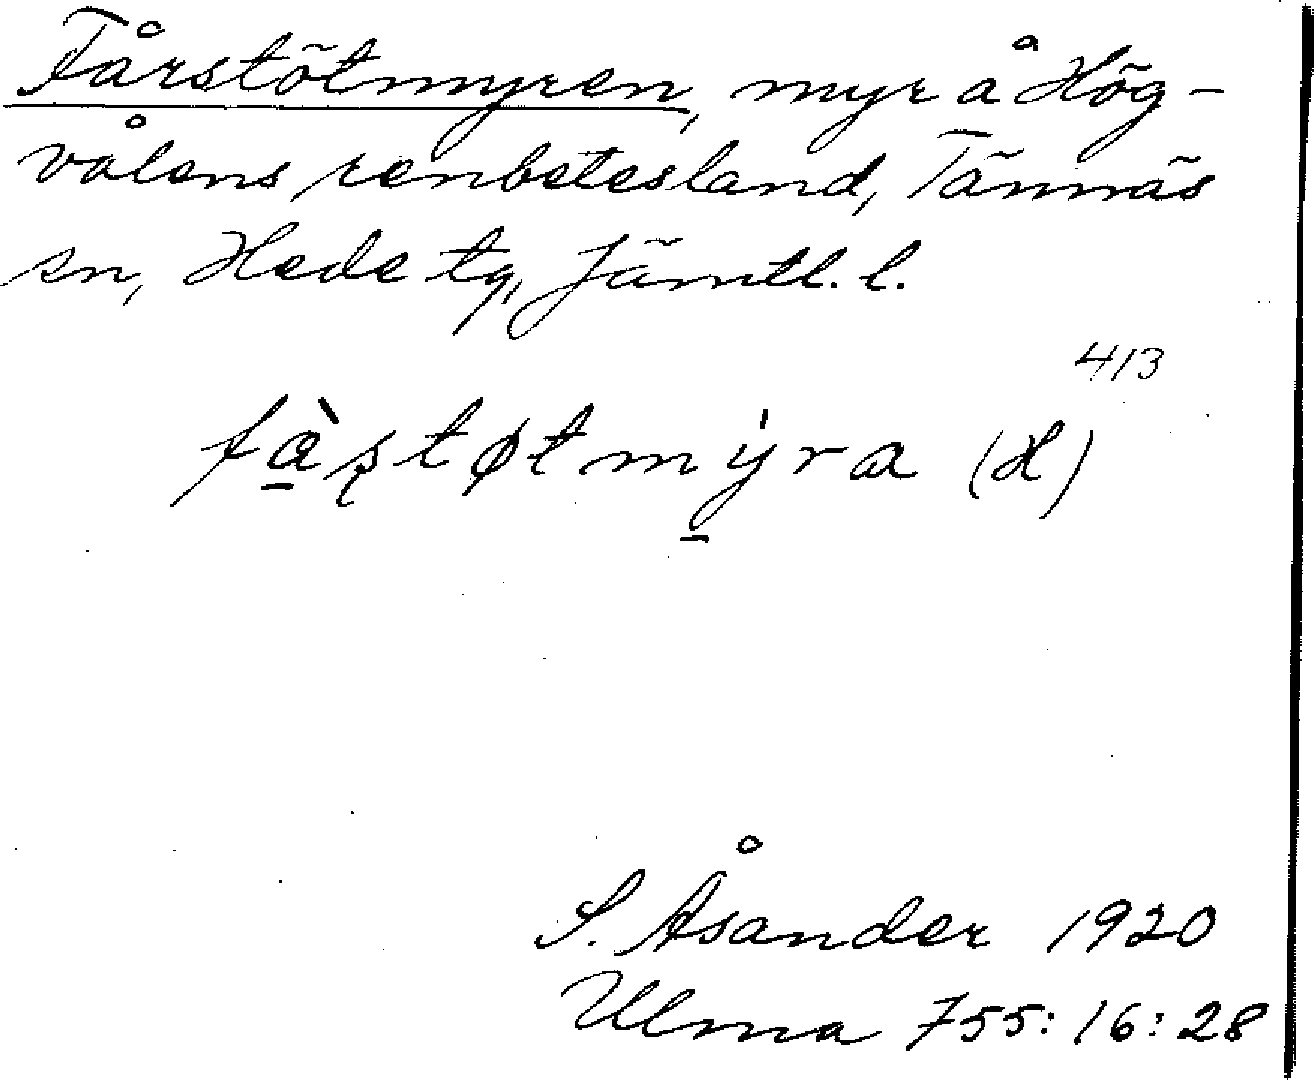 Fårstötmyren, myr å Hög-
vålens renbetesland, Tännäs
sn, Hede tg, Jämtl. l.
413
fàʂtøtmýra (H)
S. Åsander 1920
Ulma 755:16:28